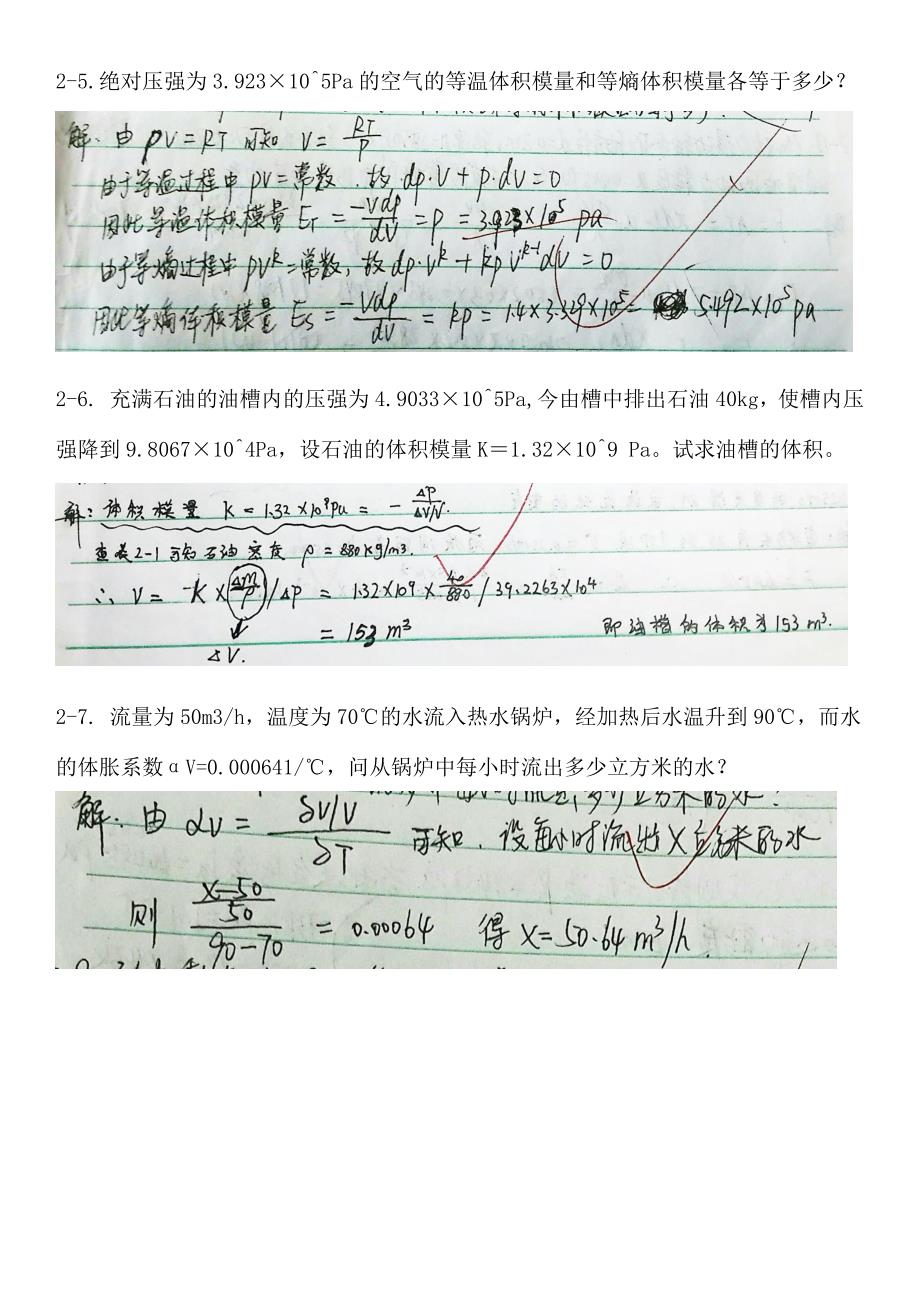 2-5.绝对压强为3.923×10^5Pa的空气的等温体积模量和等熵体积模量各等于多少？
解：由 pV=RT 可知 V=RT/P
由于等温过程中 pV=常数，故 dp·V+p·dV=0
因此等温体积模量 E_T = -Vdp/dV = p = 3.923×10^5 pa
由于等熵过程中 pV^k=常数，故 dp·V^k+kpV^(k-1)dV=0
因此等熵体积模量 E_S = -Vdp/dV = kp = 1.4×3.329×10^5= 5.492×10^5 pa
2-6. 充满石油的油槽内的压强为4.9033×10^5Pa,今由槽中排出石油40kg，使槽内压
强降到9.8067×10^4Pa，设石油的体积模量K＝1.32×10^9 Pa。试求油槽的体积。
解：体积模量 K=1.32×10^9Pa = - ΔP/(ΔV/V).
查表2-1可知石油密度 ρ=880kg/m³.
∴ V= -K×(Δm/ρ)/ΔP = 1.32×10^9×40/880/39.2263×10^4
=153 m³ 即油槽的体积为153 m³.
ΔV.
2-7. 流量为50m3/h，温度为70℃的水流入热水锅炉，经加热后水温升到90℃，而水
的体胀系数αV=0.000641/℃，问从锅炉中每小时流出多少立方米的水？
解：由 αV = (δV/V)/δT 可知，设每小时流出X立方米的水
则 ((X-50)/50)/(90-70) = 0.00064 得 X=50.64 m³/h.